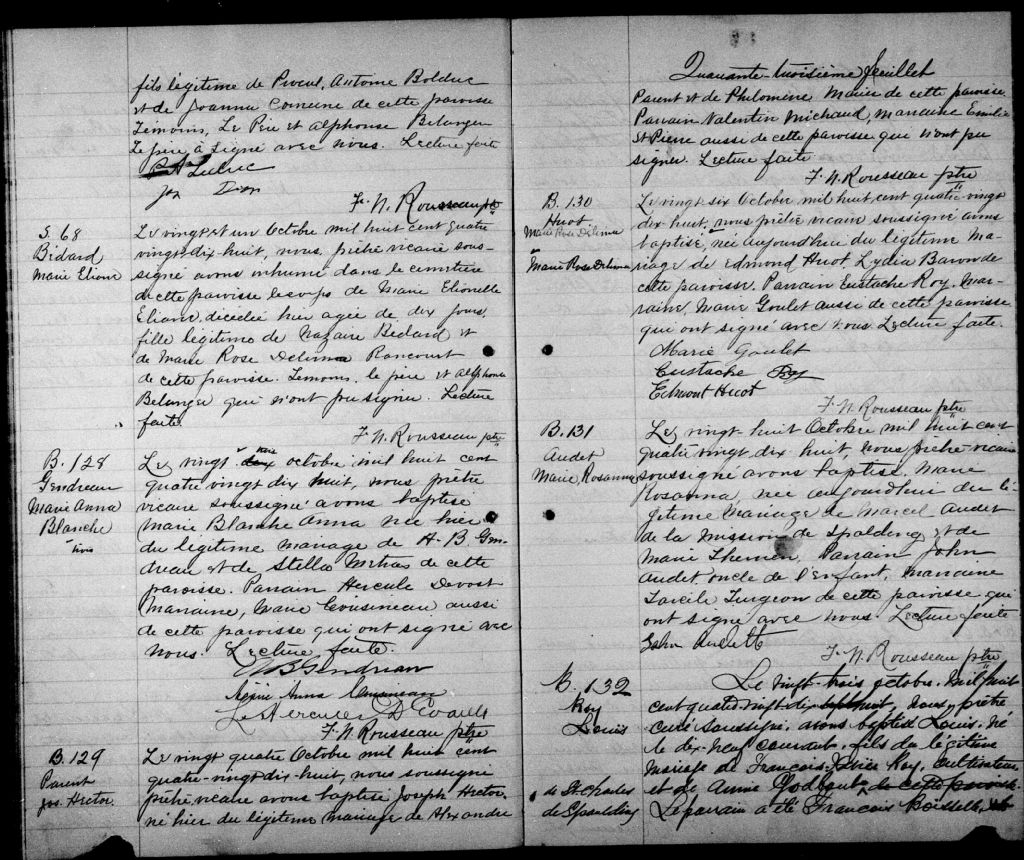 fils légitime de Procul, Antoine Bolduc
et de Joanna Comune de cette paroisse
Témoins, Le Père et Alphonse Belanger
Le père a signé avec nous. Lecture faite
Leduc
Jos Dion
F. N. Rousseau ptre
S. 68
Bédard
Marie Eliane
Le vingt et un Octobre mil huit cent quatre
vingt dix-huit, nous, prêtre vicaire sous-
signé avons inhumé dans le cimetière
de cette paroisse le corps de Marie
Eliane, décédée hier agée de dix jours,
fille légitime de Nazaire Bedard et
de Marie Rose Delima Rancourt
de cette paroisse. Temoins, le père et Alphonse
Belanger qui n'ont pu signer. Lecture
faite.
F. N. Rousseau ptre
B. 128
Gendreau
Marie Anna
Blanche
Le vingt trois octobre mil huit cent
quatre vingt dix huit, nous prêtre
vicaire soussigné avons baptisé
Marie Blanche Anna née hier
du légitime mariage de H. B. Gen-
dreau et de Stella de cette
paroisse. Parrain Hercule Devost
Marraine, Marie Cousineau aussi
de cette paroisse qui ont signé avec
nous. Lecture faite.
H B Gendreau
Anna Cousineau
Hercules D
F. N. Rousseau ptre
B. 129
Parent
Jos. Hector
Le vingt quatre Octobre mil huit cent
quatre-vingt dix-huit, nous soussigné
prêtre, vicaire avons baptisé Joseph Hector
né hier du légitime mariage de Alexandre
Quarante-troisième feuillet
Parent et de Philomène Marier de cette paroisse
Parrain Valentin Michaud, Marraine Emilie
St Pierre aussi de cette paroisse qui n'ont pu
signer. Lecture faite
F. N. Rousseau ptre
B. 130
Huot
Marie Rose Delima
Marie Rose Delima
Le vingt six Octobre mil huit cent quatre vingt
dix huit, nous prêtre vicaire soussigné avons
baptisé, née aujourdhui du légitime Ma-
riage de Edmond Huot Lydia Baron de
cette paroisse. Parrain Eustache Roy. Mar-
raine, Marie Goulet aussi de cette paroisse
qui ont signé avec nous Lecture faite.
Marie Goulet
Eustache Roy
Edmont Huot
F. N. Rousseau ptre
B. 131
Audet
Marie Rosanna
Le vingt huit Octobre mil huit cent
quatre vingt dix huit, nous prêtre vicaire
soussigné avons baptisé Marie
Rosanna, née aujourdhui du lé-
gitime Mariage de Marcel Audet
de la mission de Spalding et de
Marie Therrien Parrain John
Audet oncle de l'enfant, Marraine
Turgeon de cette paroisse qui
ont signé avec nous Lecture faite
John Audett
F. N. Rousseau ptre
B. 132
Roy
Louis
de St. Charles
de Spaulding
Le vingt-trois octobre, mil huit
cent quatre vingt dix huit, nous, prêtre
curé soussigné, avons baptisé Louis, né
le dix-neuf courant, fils du légitime
mariage de François Roy, cultivateur
et de Annie Godbout de cette paroisse.
Le parrain a été François Boisselle,